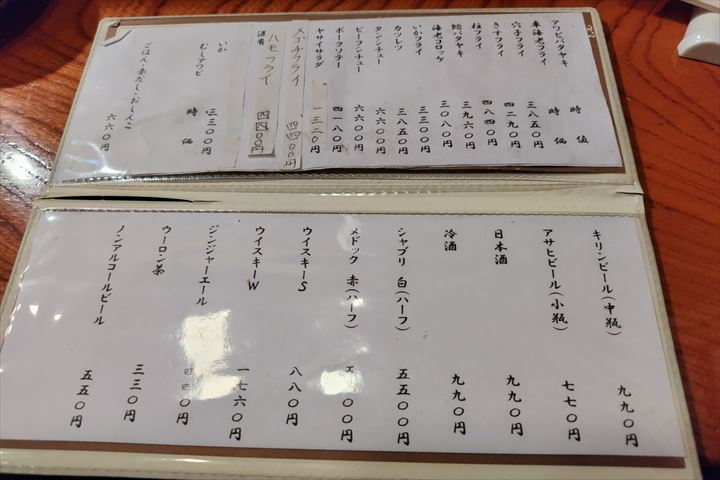 アワビバタヤキ 時値
車海老フライ 時価
穴子フライ 三八五〇円
きすフライ 四二九〇円
柱フライ 四八四〇円
蛤バタヤキ 三九六〇円
海老コロッケ 三〇八〇円
いかフライ 三三〇〇円
カツレツ 三八五〇円
タンシチュー 六六〇〇円
ビーフシチュー 六六〇〇円
ポークソテー 四一八〇円
ヤサイサラダ 一三二〇円
メゴチフライ 四四〇〇円
酒肴
ハモフライ 四四〇〇円
いか 三三〇〇円
むしアワビ 時価
ごはん・赤だし・おしんこ 六六〇円
キリンビール(中瓶) 九九〇円
アサヒビール(小瓶) 七七〇円
日本酒 九九〇円
冷酒 九九〇円
シャブリ 白(ハーフ) 五五〇〇円
メドック 赤(ハーフ)
ウイスキーS 八八〇円
ウイスキーW 一七六〇円
ジンジャーエール 四四〇円
ウーロン茶 三三〇円
ノンアルコールビール 五五〇円